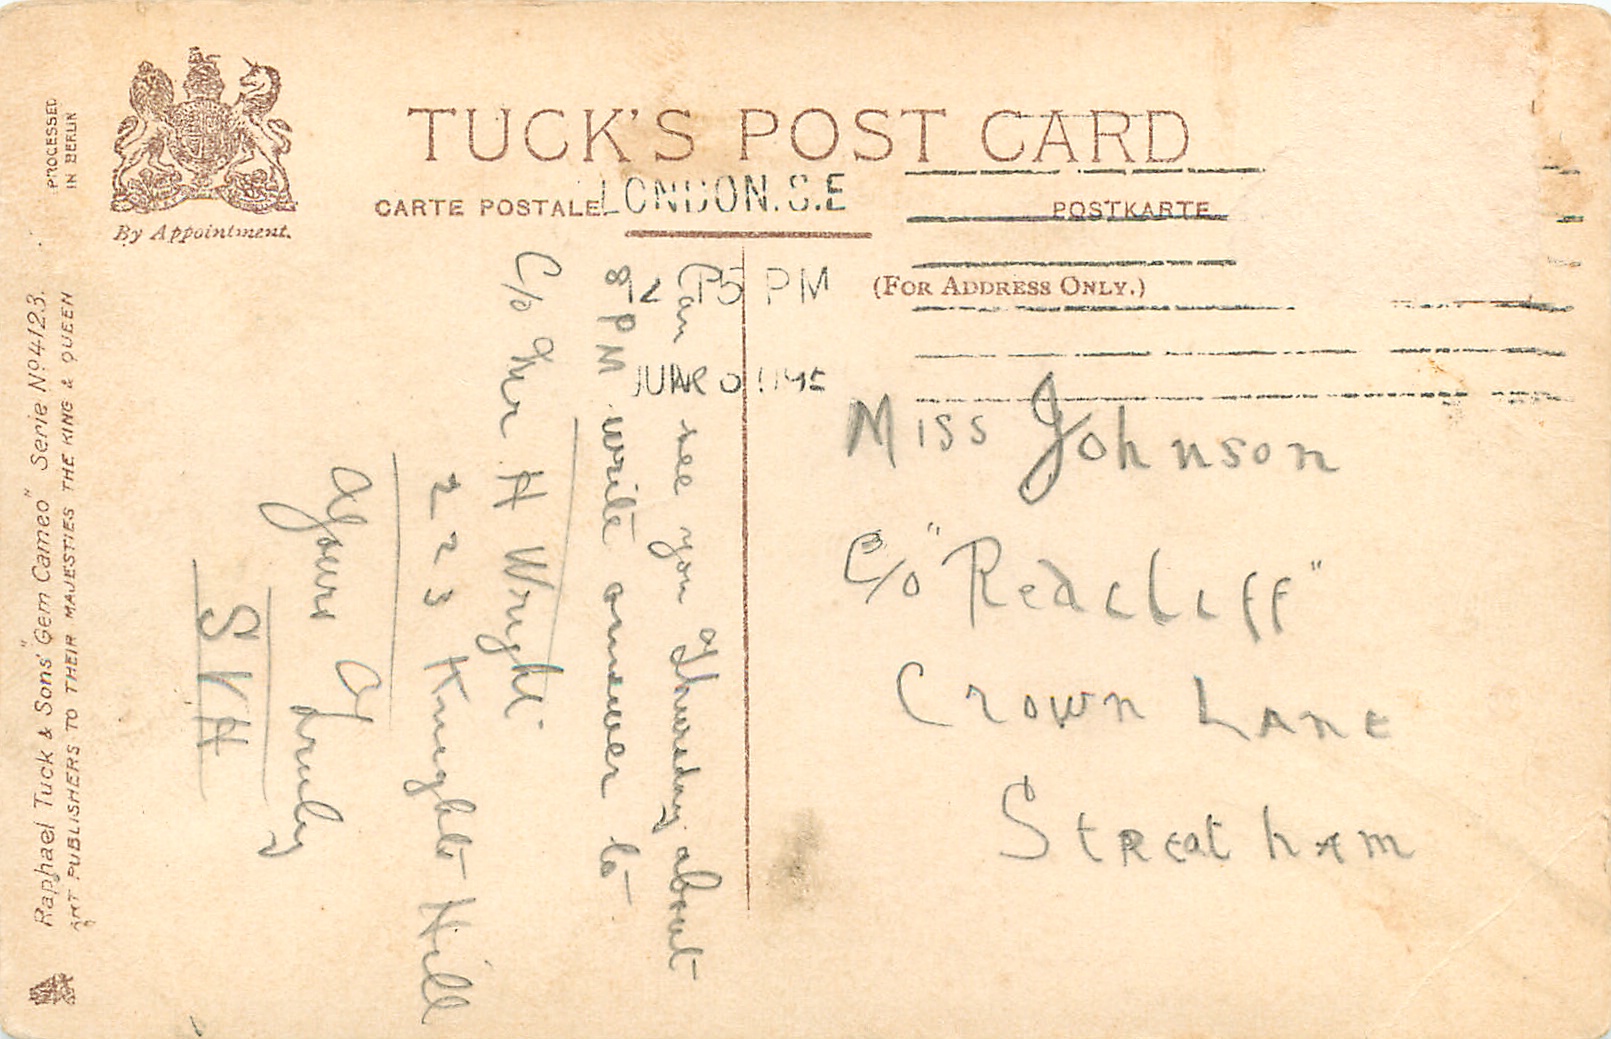 PROCESSED
IN BERLIN
By Appointment.
TUCK'S POST CARD
CARTE POSTALE
LONDON. S.E
POSTKARTE
(FOR ADDRESS ONLY.)
PM
Raphael Tuck & Sons' "Gem Cameo" Serie No 4123.
ART PUBLISHERS TO THEIR MAJESTIES THE KING & QUEEN
Can see you Thursday about
8 PM. write answer to
C/o Mr A Wright
223 Knights Hill
Yours Truly
SVA
Miss Johnson
C/o "Redcliff"
Crown Lane
Streatham